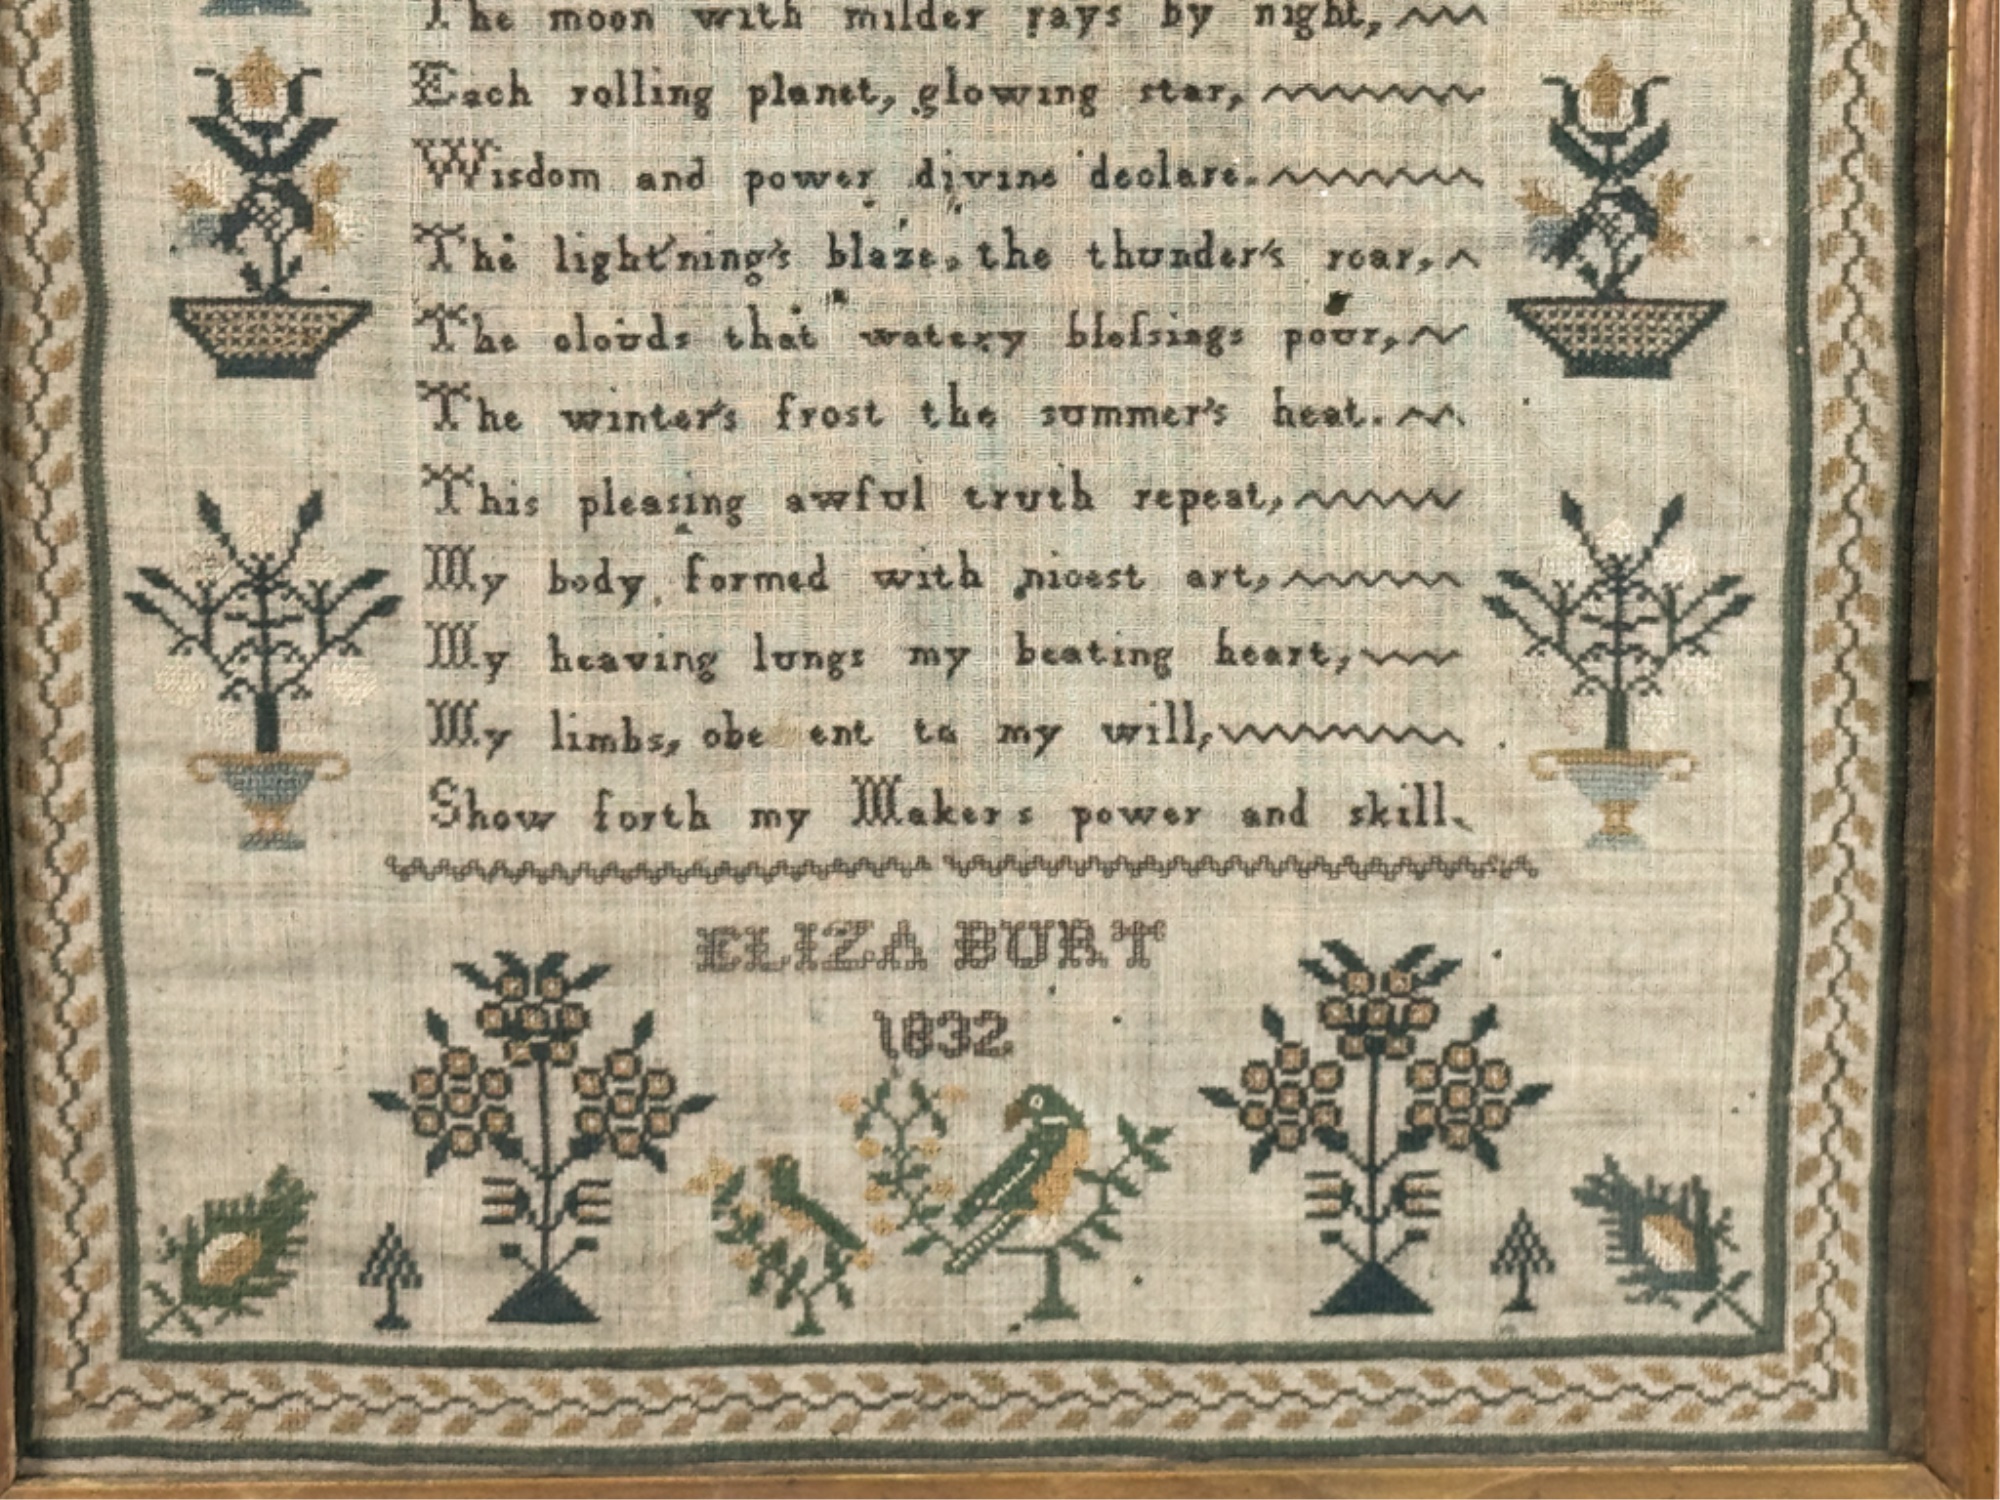 The moon with milder rays by night,
Each rolling planet, glowing star,
Wisdom and power divine declare.
The light'ning's blaze, the thunder's roar,
The clouds that watery bleſsings pour,
The winter's frost the summer's heat.
This pleasing awful truth repeat,
My body formed with nicest art,
My heaving lungs my beating heart,
My limbs, obe ent to my will,
Show forth my Makers power and skill.
ELIZA BURT
1832